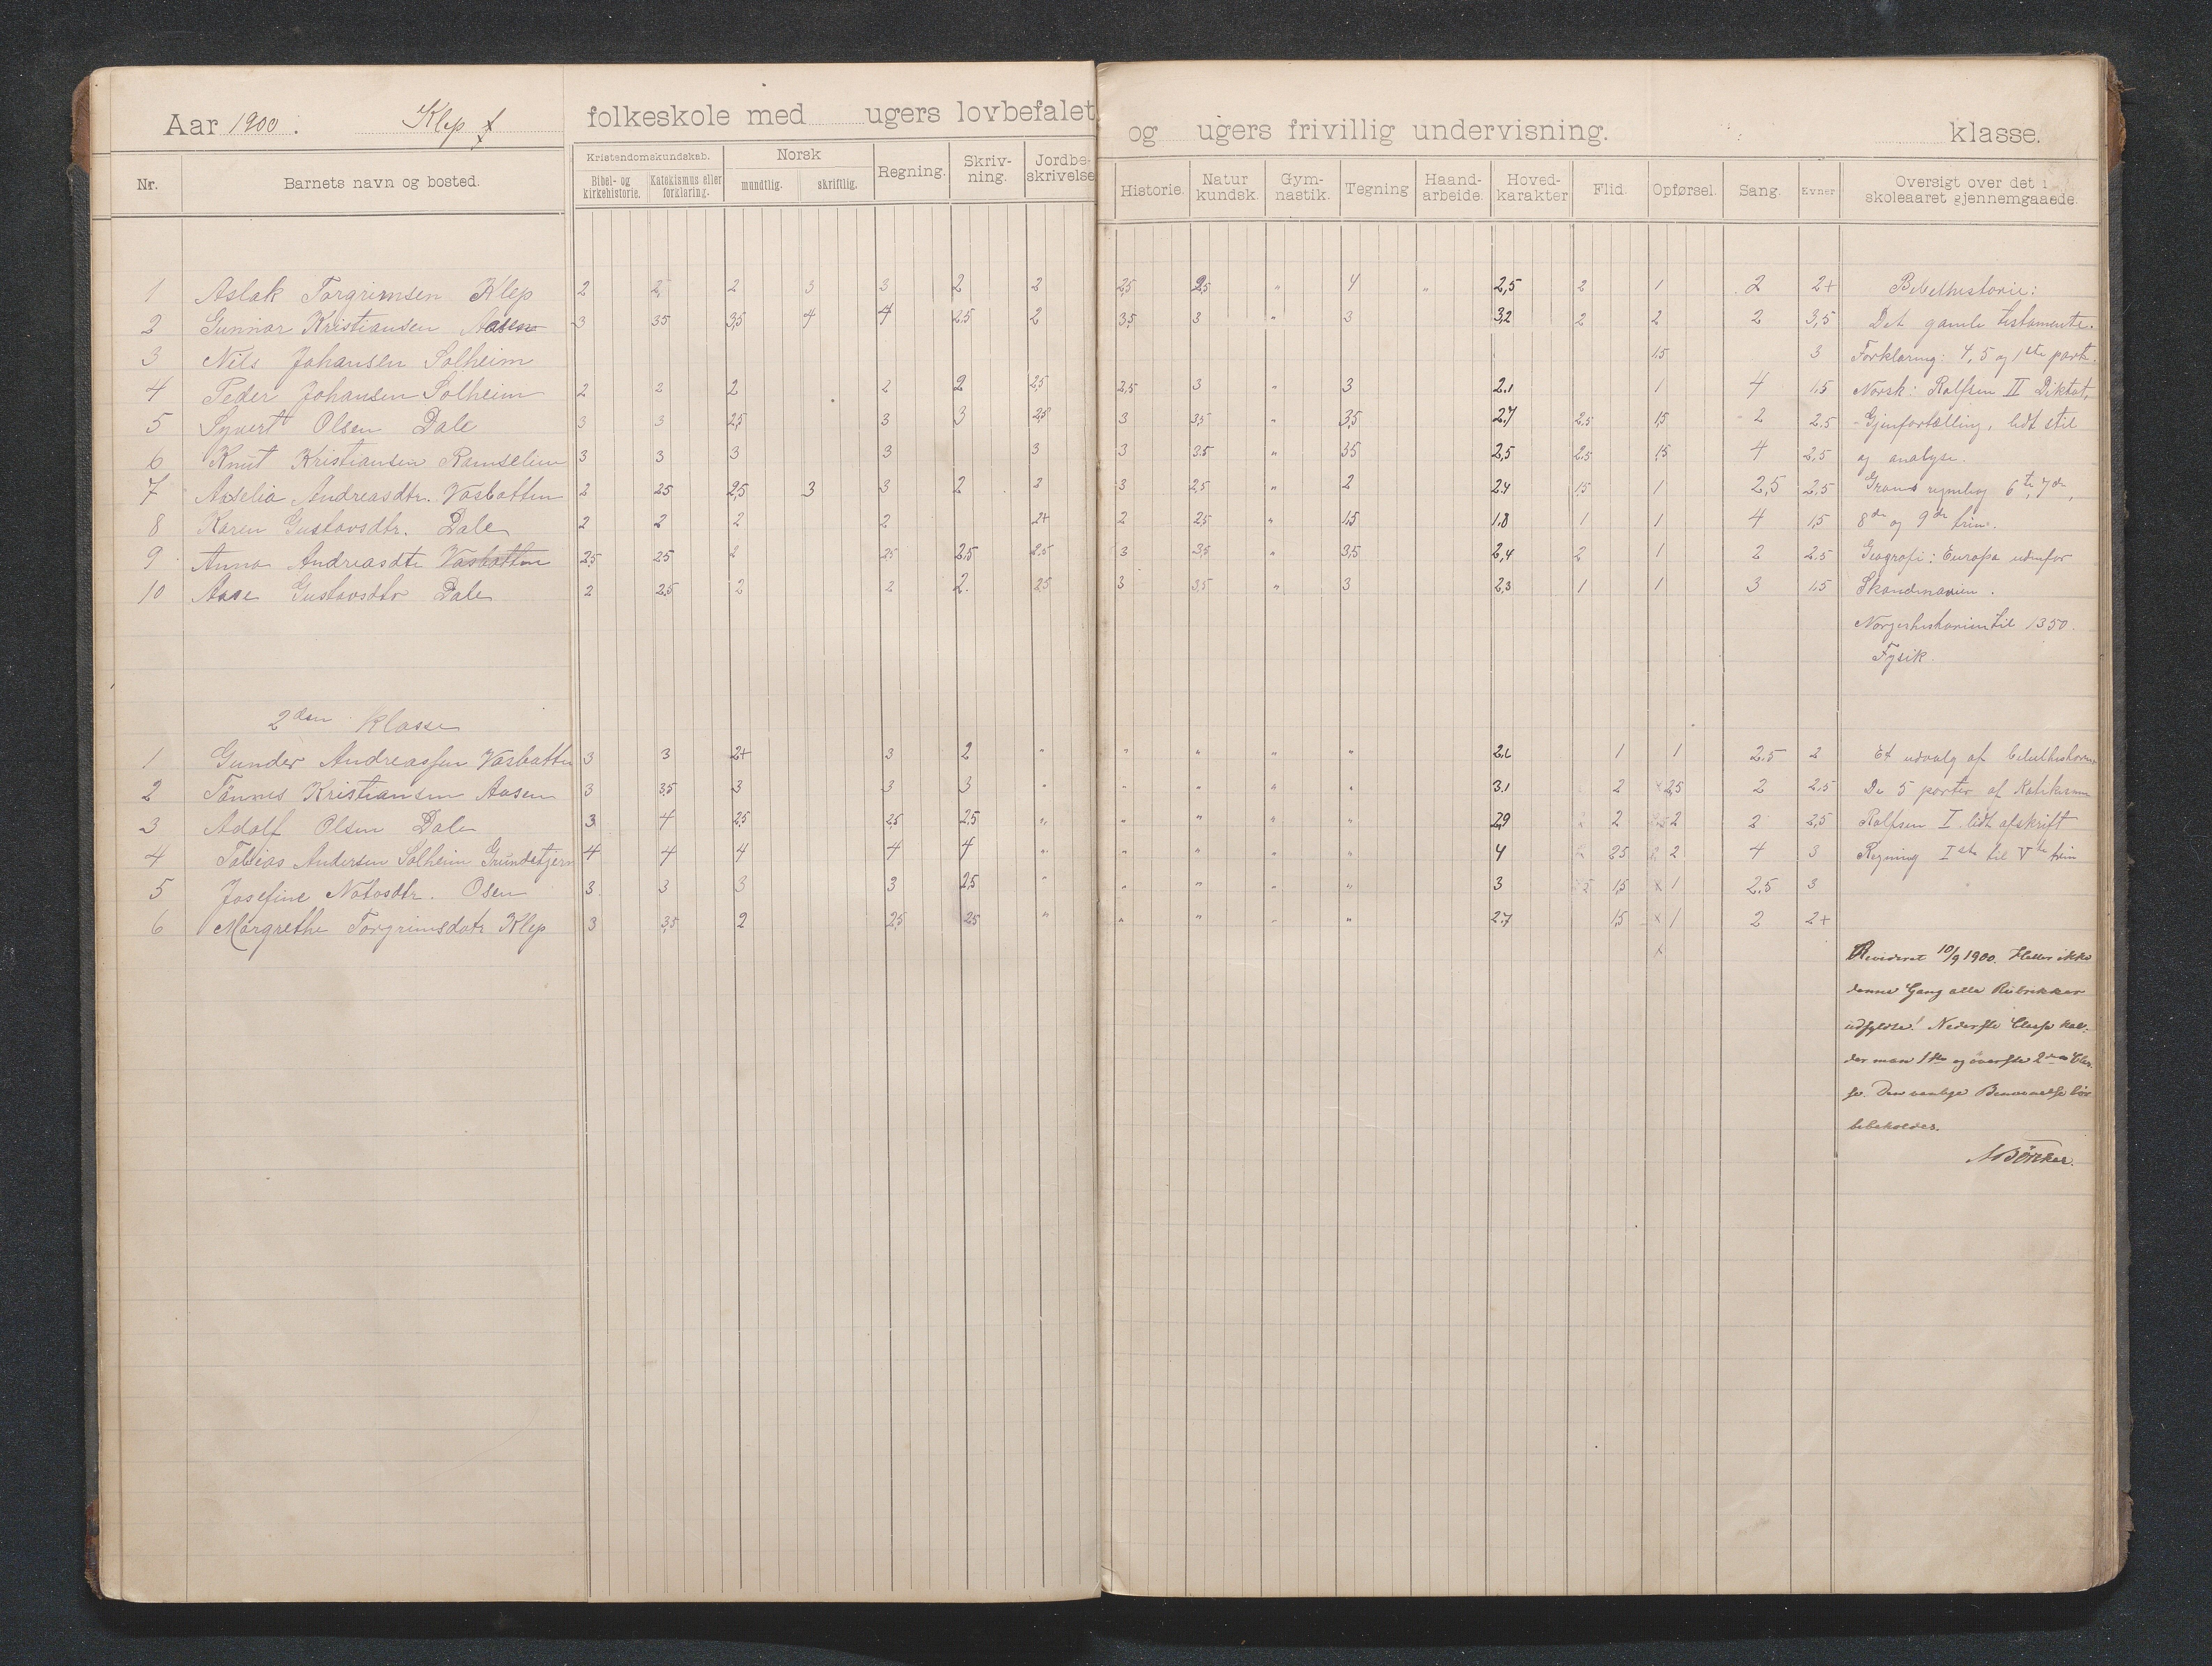 Aar 1900. Klep folkeskole med ugers lovbefalet og ugers frivillig undervisning. klasse.
Nr. Barnets navn og bosted. Kristendomskundskab. Bibel- og kirkehistorie. Katekismus eller forklaring. Norsk mundtlig. skriftlig. Regning. Skriv-ning. Jordbe-skrivelse Historie. Natur kundsk. Gym-nastik. Tegning Haand-arbeide. Hoved-karakter Flid. Opførsel. Sang. Evner Oversigt over det i skoleaaret gjennemgaaede.
1 Aslak Torgrimsen Klep 2 2 2 3 3 2 2 2,5 2,5 " 4 " 2,5 2 1 2 2+ Bibelhistorie:
2 Gunnar Kristiansen Aasen 3 3,5 3,5 4 4 2,5 2 3,5 3 " 3 3,2 2 2 2 3,5 Det gamle testamente.
3 Nils Johansen Solheim 1,5 3 Forklaring: 4, 5 og 1ste part.
4 Peder Johansen Solheim 2 2 2 2 2 2,5 2,5 3 " 3 2.1 1 4 1,5 Norsk: Rolfsen II Diktat,
5 Syvert Olsen Dale 3 3 2,5 3 3 2,5 3 3,5 " 3,5 2.7 2.5 1,5 2 2.5 Gjenfortælling, lidt stil
6 Knut Kristiansen 3 3 3 3 3 3 3.5 " 3,5 2,5 2.5 1,5 4 2,5 og analyse.
7 Andreasdtr. Vasbotten 2 2,5 2,5 3 3 2 2 3 2,5 " 2 2.4 1,5 1 2,5 2,5 6te, 7de,
8 Karen Gustavsdtr. Dale 2 2 2 2 2+ 2 2,5 " 1,5 1.8 1 1 4 1,5 8de og 9de trin.
9 Anna Andreasdtr Vasbotten 2,5 2,5 2 2,5 2,5 2.5 3 3,5 3,5 2,4 2 1 2 2.5 Geografi: Europa udenfor
10 Aase Gustavsdtr Dale 2 2,5 2 2 2. 2,5 3 3,5 " 3 2,3 1 1 3 1.5 Skandinavien.
Norgeshistorien til 1350.
Fysik.
2den klasse
1 Gunder Andreassen Vasbotten 3 3 2+ 3 2 " " " " " 1 1 2.5 2 Et udvalg af bibelhistorien
2 Tønnes Kristiansen Aasen 3 3,5 3 3 3 " " " " " 3.1 2 x 2,5 2 2.5 De 5 parter af Katekismen
3 Adolf Olsen Dale 3 4 2,5 2,5 2,5 " " " " " 2,9 2 2 2 2,5 Rolfsen I. lidt afskrift
4 Tobias Andersen Solheim Grundetjern 4 4 4 4 4 " " " " " 4 2,5 2 4 3 Regning Iste til Vte trin
5 Josefine Osen 3 3 3 3 2,5 " " " " " 3 1,5 x 1 2.5 3
6 Margrethe Torgrimsdatr Klep 3 3,5 2 2,5 2,5 " " " " " 2.7 1,5 x 1 2 2+
x Revideret 10/9 1900. Heller ikke
denne Gang alle Rubrikker
udfyldte! Nederste Classe kal-
der man 1ste og øverste 2den Clas-
se. Den vanlige Benævnelse bør
bibeholdes.